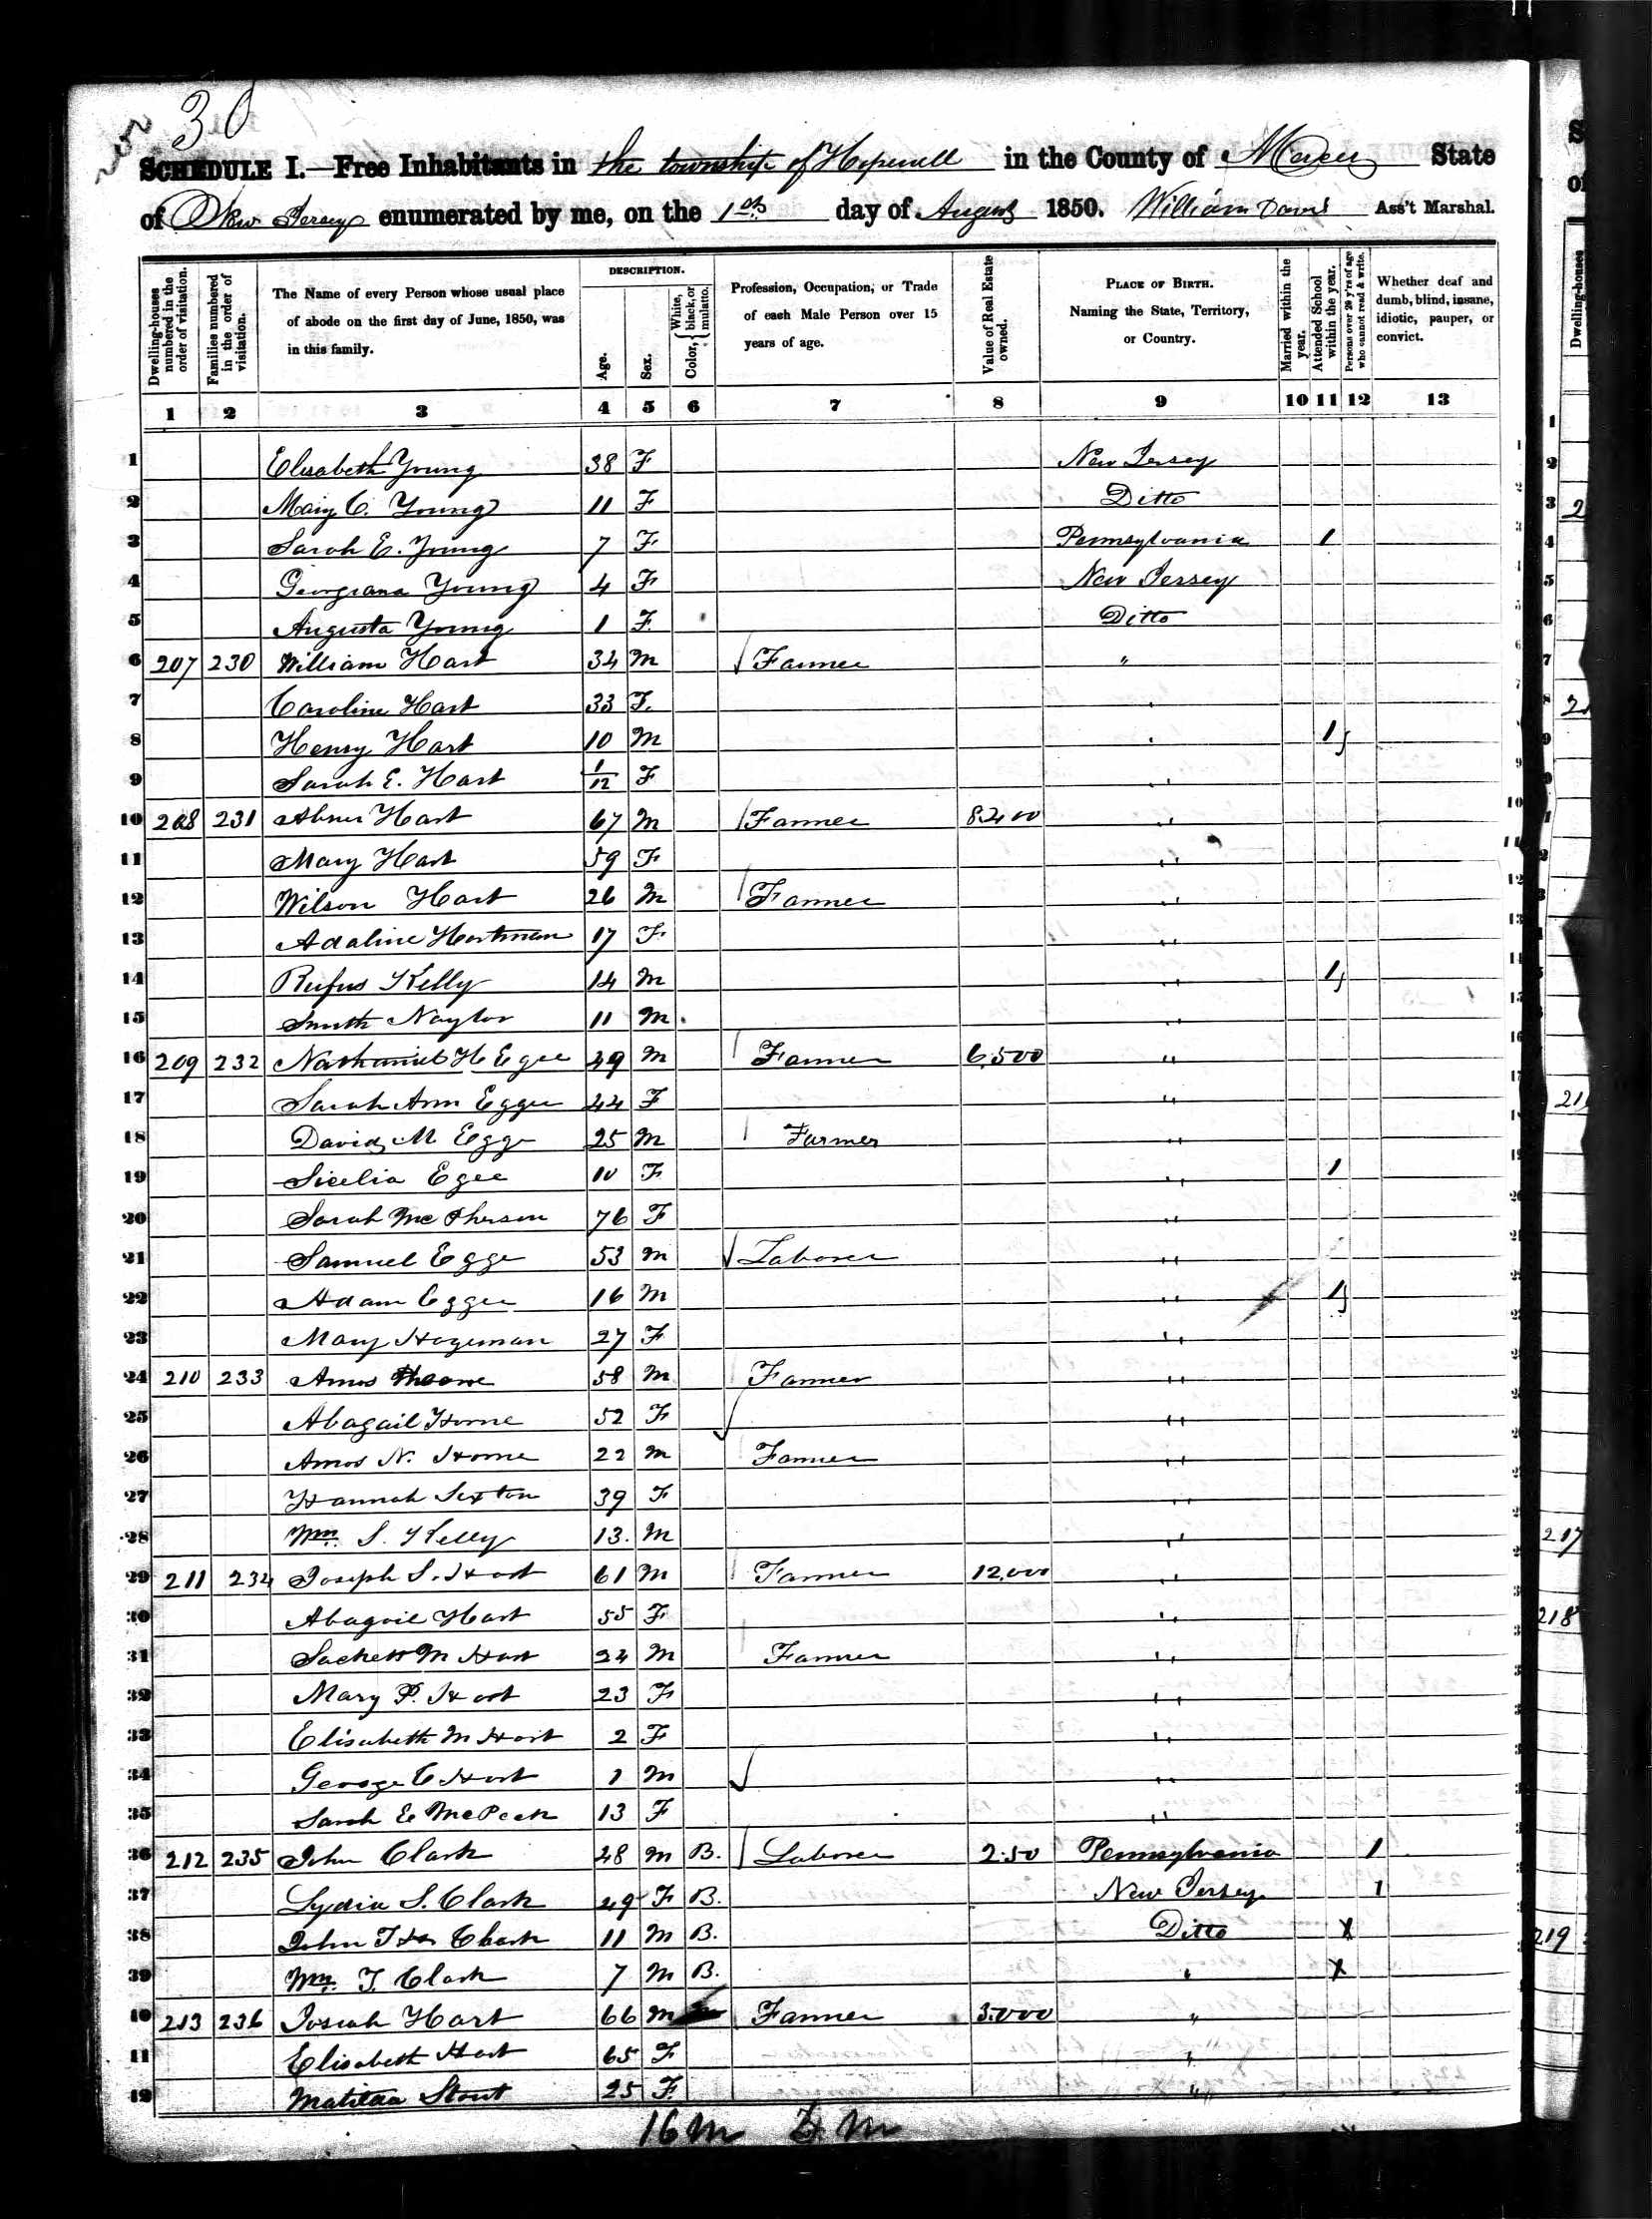 30
SCHEDULE I.—Free Inhabitants in the township of Hopewell in the County of Mercer State
of New Jersey enumerated by me, on the 1st day of August 1850. William Ass't Marshal.
Dwelling-houses numbered in the order of visitation.
Families numbered in the order of visitation.
The Name of every Person whose usual place of abode on the first day of June, 1850, was in this family.
DESCRIPTION.
Age.
Sex.
Color, { White, black, or mulatto.
Profession, Occupation, or Trade of each Male Person over 15 years of age.
Value of Real Estate owned.
PLACE OF BIRTH. Naming the State, Territory, or Country.
Married within the year.
Attended School within the year.
Persons over 20 y'rs of age who cannot read & write.
Whether deaf and dumb, blind, insane, idiotic, pauper, or convict.
1 2 3 4 5 6 7 8 9 10 11 12 13
1 Elisabeth Young 38 F New Jersey
2 Mary C. Young 11 F Ditto
3 Sarah E. Young 7 F Pennsylvania 1
4 Georgiana Young 4 F New Jersey
5 Augusta Young 1 F. Ditto
6 207 230 William Hart 34 M Farmer "
7 Caroline Hart 33 F. "
8 Henry Hart 10 M " 1
9 Sarah E. Hart 1/12 F "
10 208 231 Abner Hart 67 M Farmer 8200 "
11 Mary Hart 59 F "
12 Wilson Hart 26 M Farmer "
13 Adaline Hartman 17 F "
14 Rufus Kelly 14 M " 1
15 Smith Naylor 11 M "
16 209 232 Nathaniel H Egee 49 M Farmer 6,500 "
17 Sarah Ann Eggee 44 F "
18 David M Egge 25 M Farmer "
19 Sicelia Egee 10 F " 1
20 Sarah McPherson 76 F "
21 Samuel Egge 53 M Laborer "
22 Adam Eggee 16 M " 1
23 Mary Hageman 27 F "
24 210 233 Amos 58 M Farmer "
25 Abagail Horne 52 F "
26 Amos N. Horne 22 M Farmer "
27 Hannah Sexton 39 F "
28 Wm. S. Kelly 13. M "
29 211 234 Joseph S. Hart 61 M Farmer 12,000 "
30 Abagail Hart 55 F "
31 Sackett M Hart 24 M Farmer "
32 Mary P. Hart 23 F "
33 Elisabeth M Hart 2 F "
34 George C Hart 1 M "
35 Sarah E McPeek 13 F "
36 212 235 John Clark 48 M B. Laborer 2.50 Pennsylvania 1
37 Lydia S. Clark 49 F B. New Jersey 1
38 John Clark 11 M B. Ditto X
39 Wm. T. Clark 7 M B. " X
40 213 236 Josiah Hart 66 M Farmer 3.000 "
41 Elisabeth Hart 65 F "
42 Matilda Stout 25 F. "
16 M
217
218
219